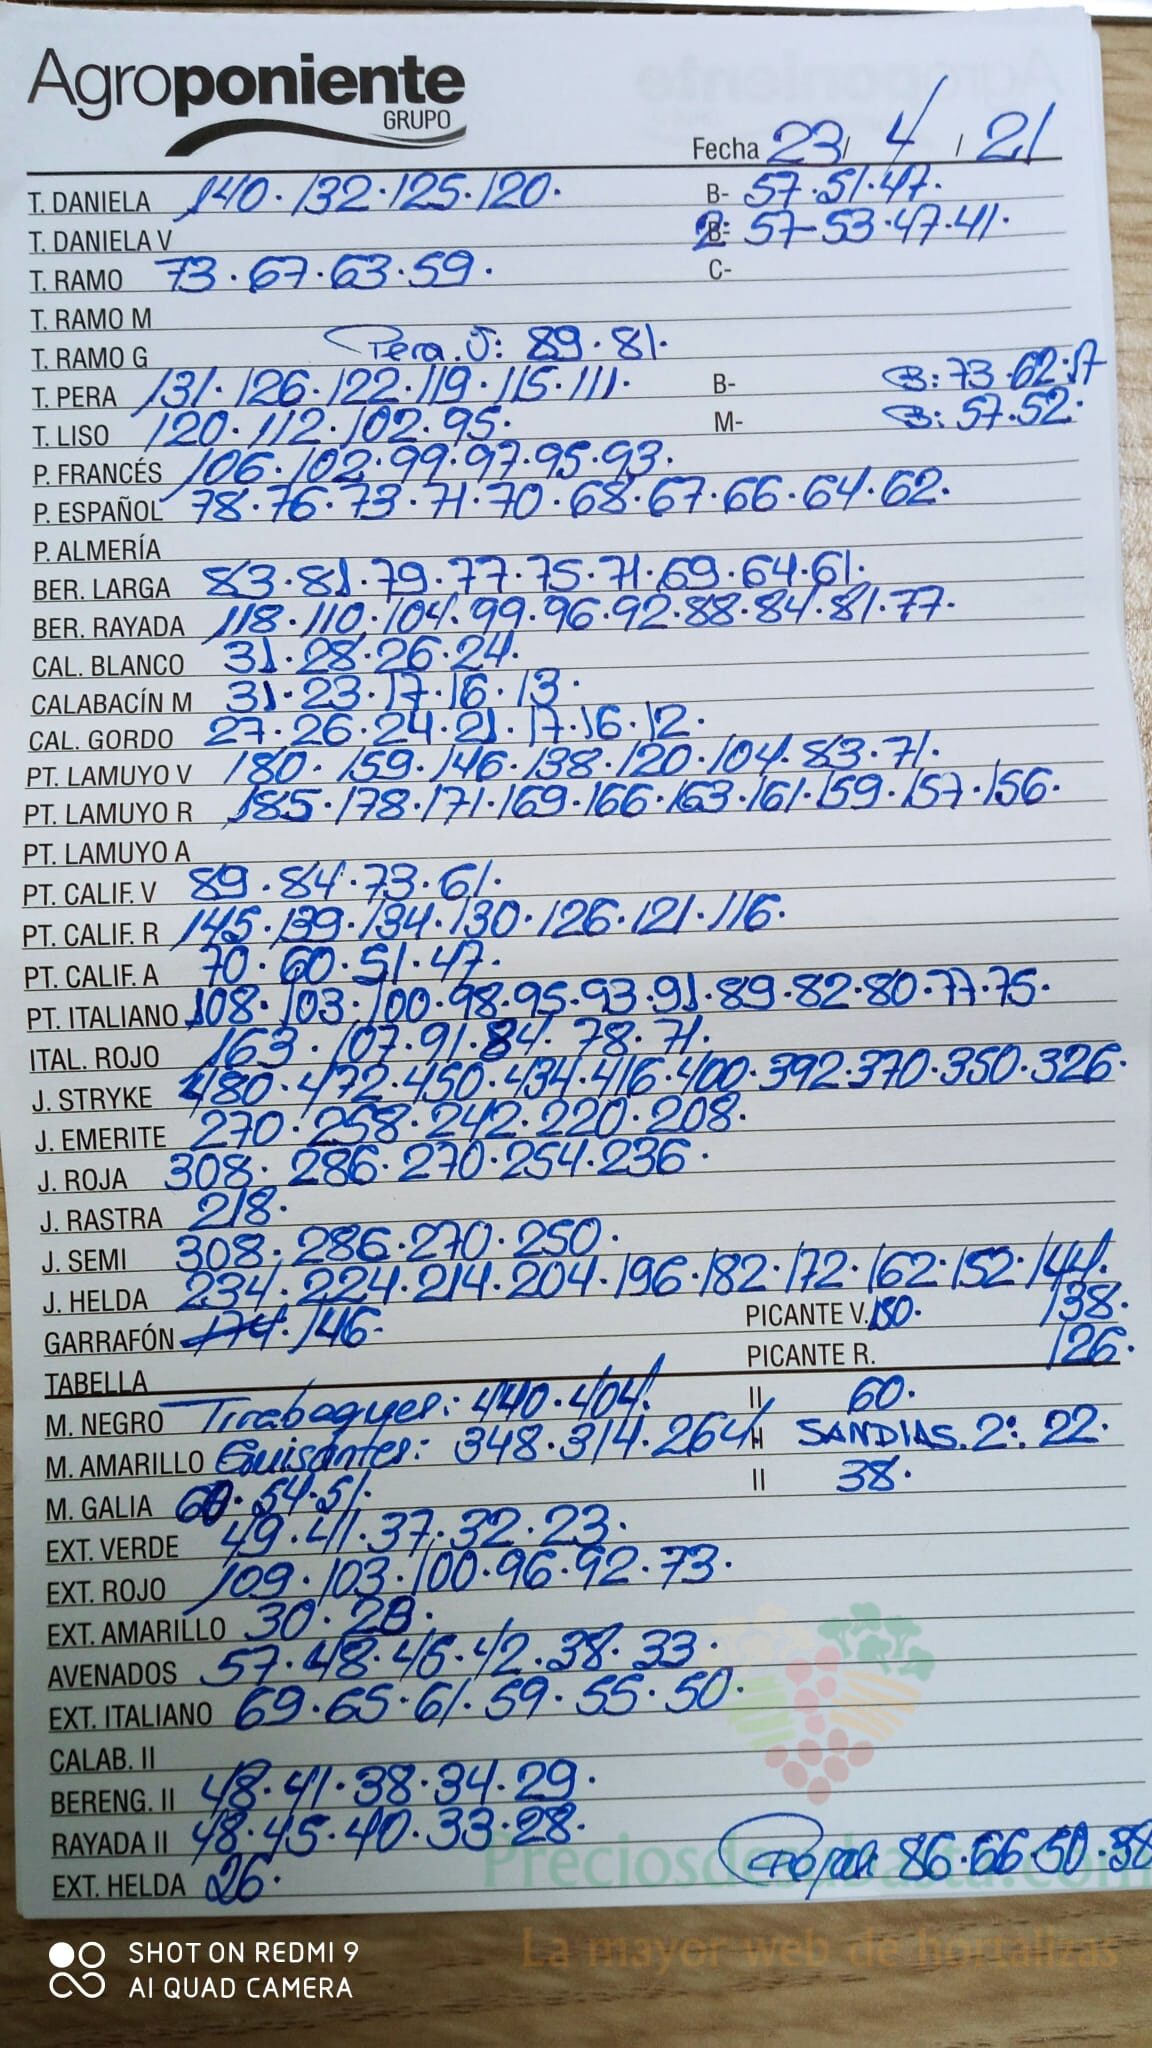 Agroponiente
GRUPO
Fecha 23/ 4 / 21
T. DANIELA 140. 132.125.120. B- 57.51.47.
T. DANIELA V 2: 57-53.47.41.
T. RAMO 73.67.63.59. C-
T. RAMO M
T. RAMO G Pera.V: 89.81.
T. PERA 131.126.122.119.115.111. B- B: 73.62.17
T. LISO 120.112.102.95. M- B: 57.52.
P. FRANCÉS 106.102.99.97.95.93.
P. ESPAÑOL 78.76.73.71.70.68.67.66.64.62.
P. ALMERÍA
BER. LARGA 83.81.79.77.75.71.69.64.61.
BER. RAYADA 118.110.104.99.96.92.88.84.81.77.
CAL. BLANCO 31.28.26.24.
CALABACÍN M 31.23.17.16.13.
CAL. GORDO 27.26.24.21.17.16.12.
PT. LAMUYO V 180.159.146.138.120.104.83.71.
PT. LAMUYO R 185.178.171.169.166.163.161.159.157.156.
PT. LAMUYO A
PT. CALIF. V 89.84.73.61.
PT. CALIF. R 145.139.134.130.126.121.116.
PT. CALIF. A 70.60.51.47.
PT. ITALIANO 108.103.100.98.95.93.91.89.82.80.77.75.
ITAL. ROJO 163.107.91.84.78.71.
J. STRYKE 480.472.450.434.416.400.392.370.350.326.
J. EMERITE 270.258.242.220.208.
J. ROJA 308.286.270.254.236.
J. RASTRA 218.
J. SEMI 308.286.270.250.
J. HELDA 234.224.214.204.196.182.172.162.152.144.
GARRAFÓN 174.146. PICANTE V. 150. 138.
TABELLA PICANTE R. 126.
M. NEGRO Tirabeques: 440.404. II 60.
M. AMARILLO Guisantes: 348.314.264 II SANDIAS. 2ª: 22.
M. GALIA 60.54.51. II 38.
EXT. VERDE 49.41.37.32.23.
EXT. ROJO 109.103.100.96.92.73.
EXT. AMARILLO 30.28.
AVENADOS 57.48.46.42.38.33.
EXT. ITALIANO 69.65.61.59.55.50.
CALAB. II
BERENG. II 48.41.38.34.29.
RAYADA II 48.45.40.33.28.
EXT. HELDA 26. 86.66.50.38
Preciosdesubasta.com
La mayor web de hortalizas
SHOT ON REDMI 9
AI QUAD CAMERA